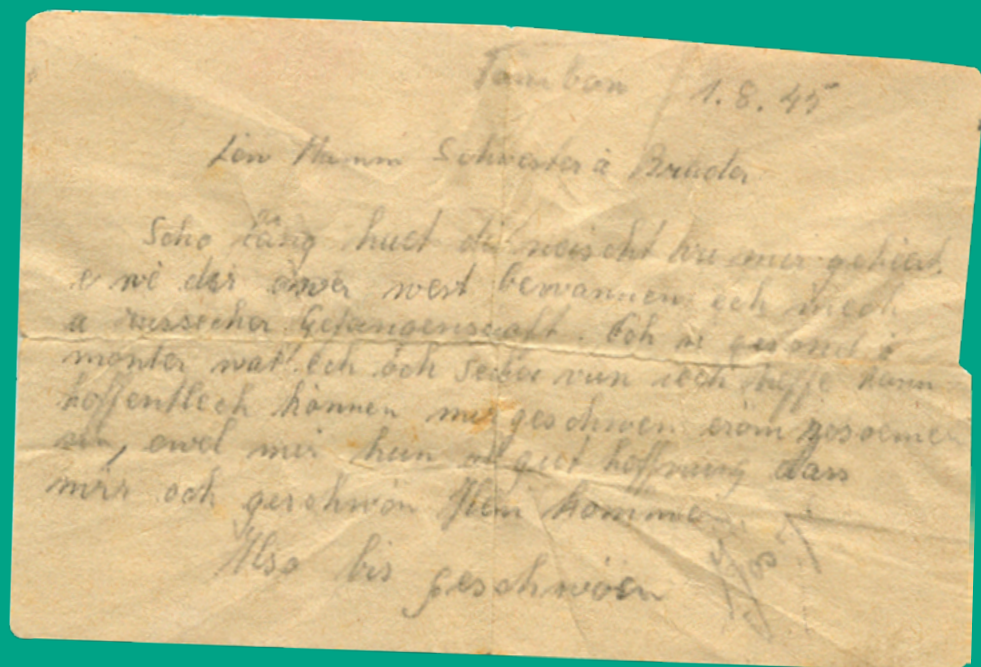 Tambow 1.8.45
Lew Mamm Schwester a Brueder
Scho läng huet dir neischt vu mir gehiert.
e wé dir ower west bewannen ech mech
a russecher Gefangenschaft. Ech si gesond a
monter wat ech och vun iech hoffe kann
hoffentlech kënnen mir geschwen erëm zesoemen
sin, ewel mir hun all gud hoffnung dass
mir och geschwön Hém kommen.
Also bis geschwöen Jos. J